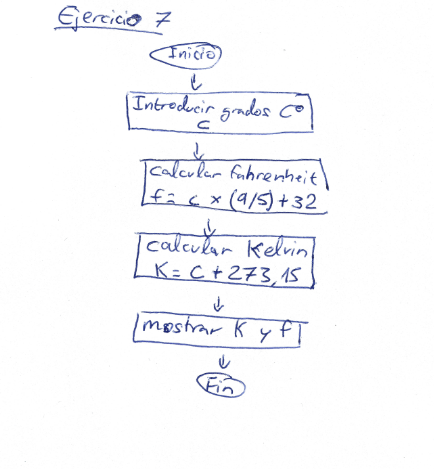 Ejercicio 7
Inicio
Introducir grados Cº
C
calcular fahrenheit
f= c × (9/5)+32
calcular Kelvin
K= C + 273,15
mostrar K y f
Fin